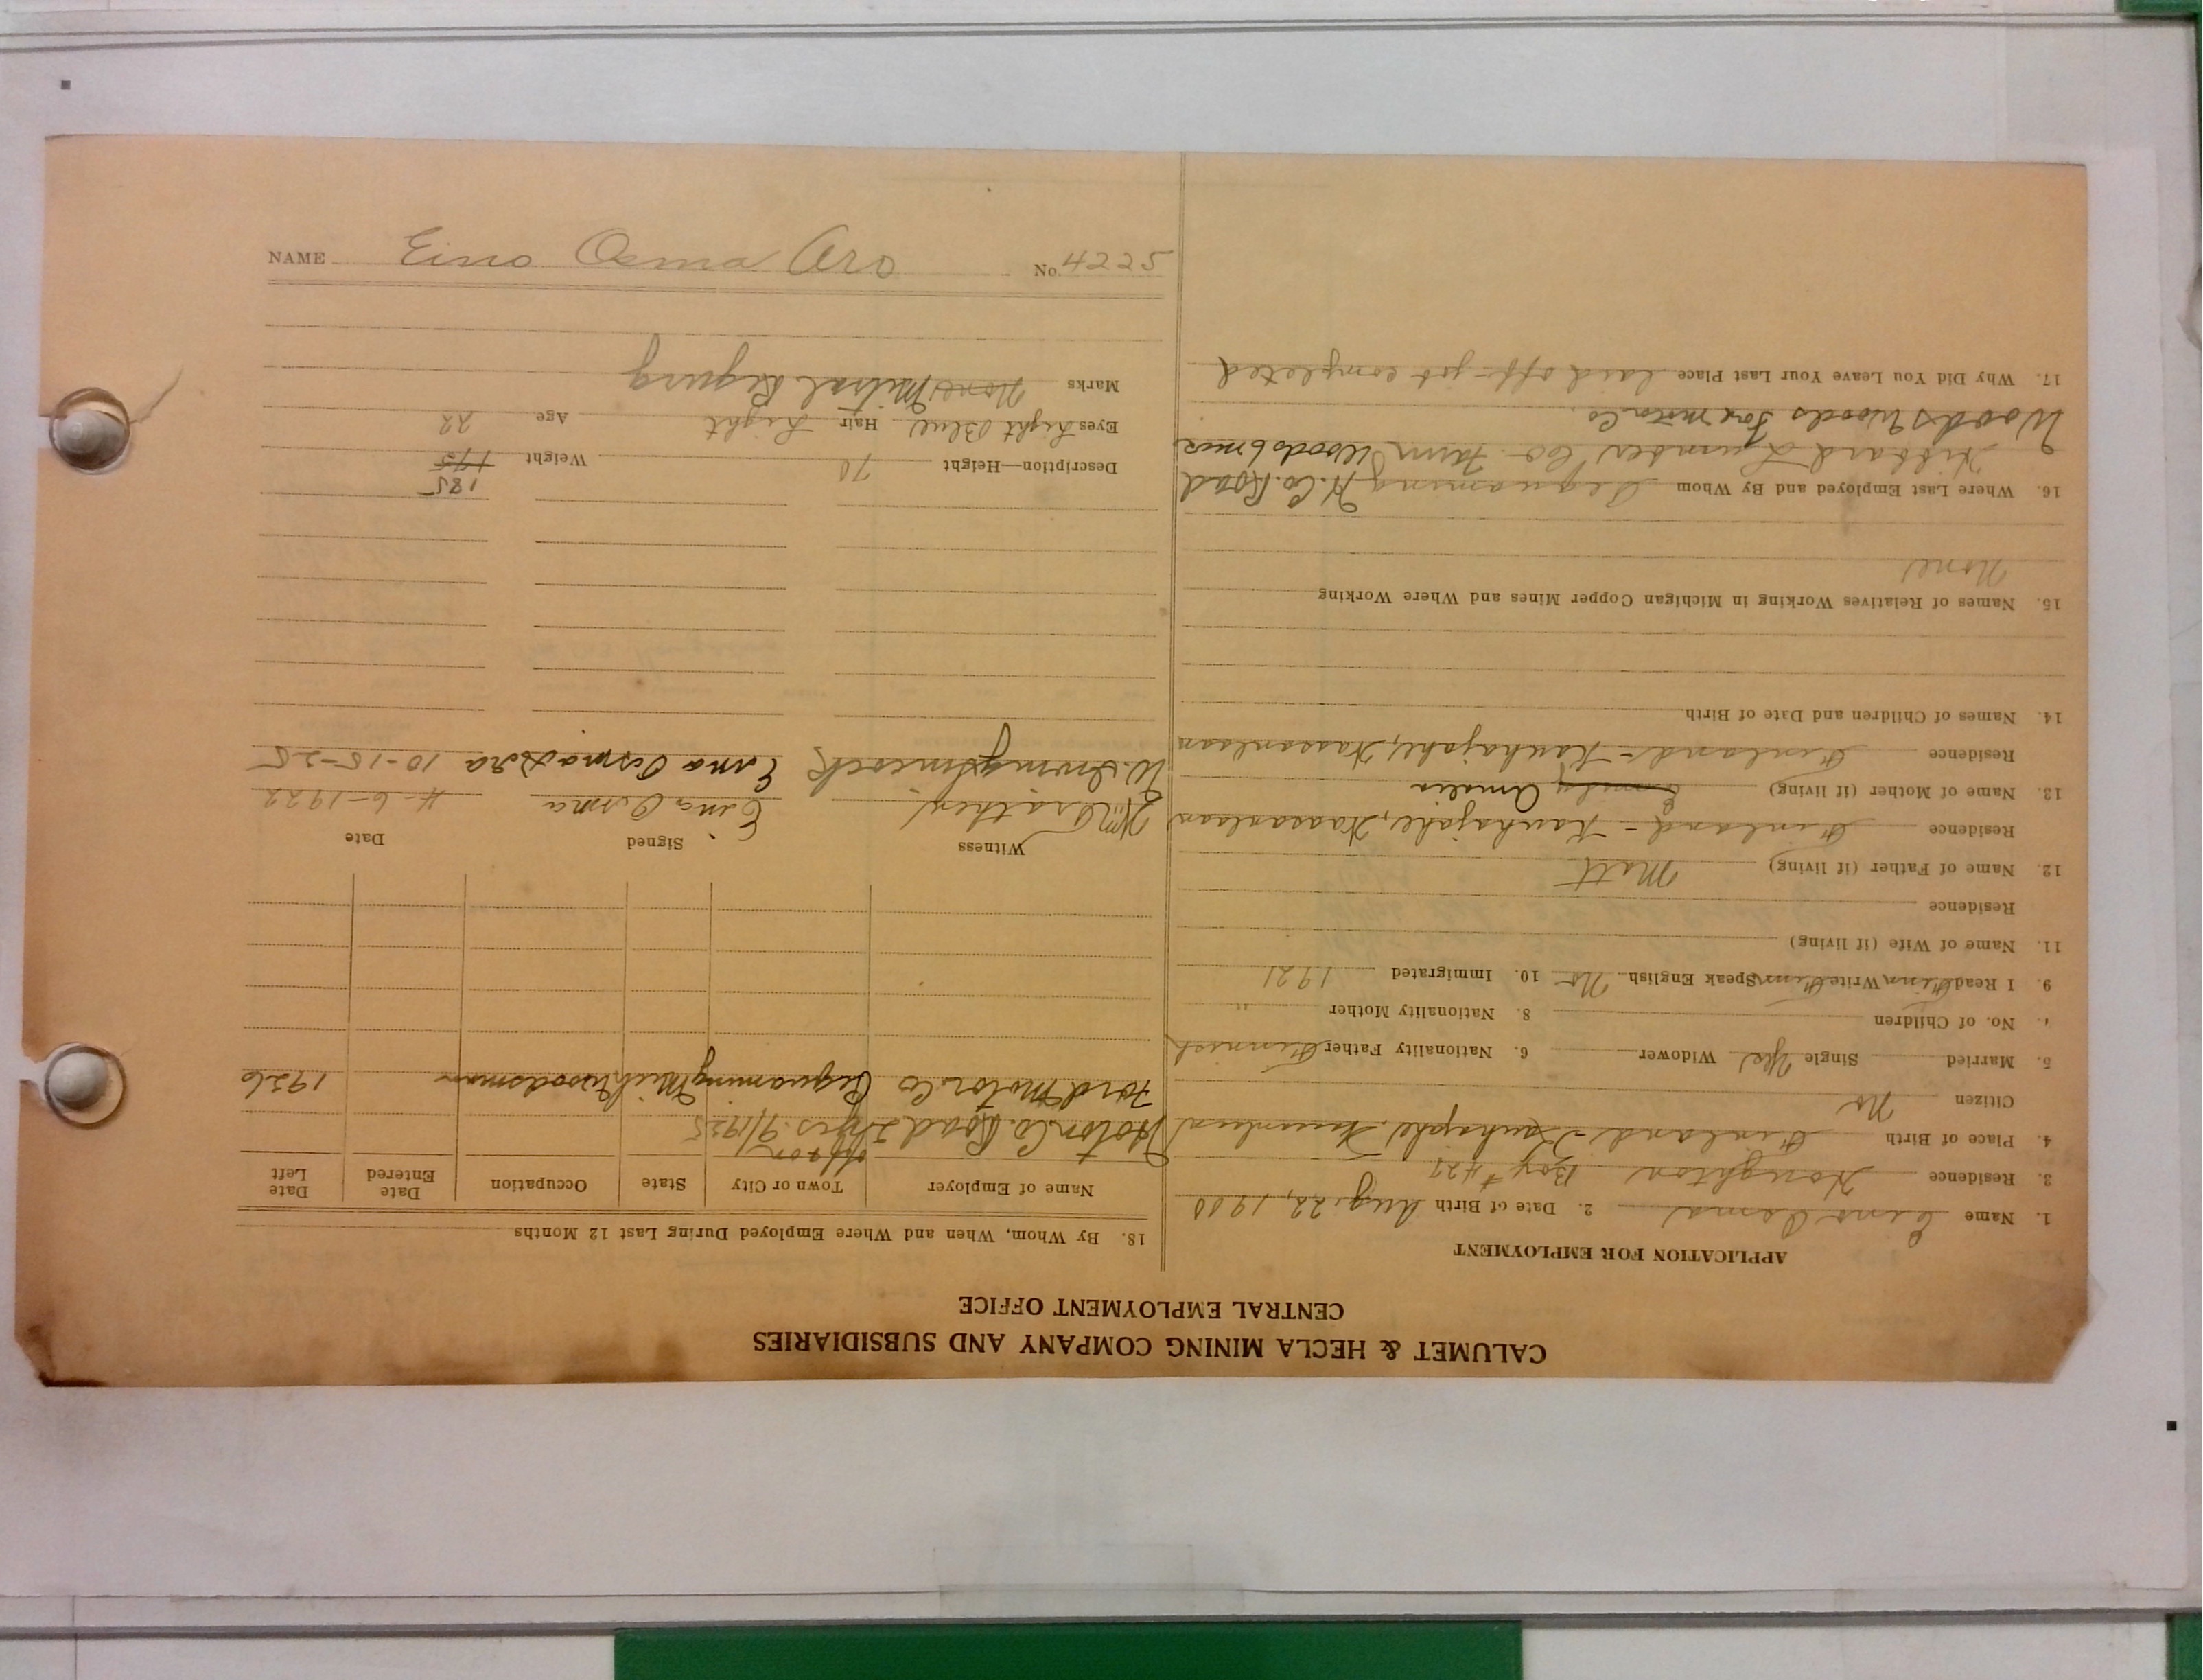 CALUMET & HECLA MINING COMPANY AND SUBSIDIARIES
CENTRAL EMPLOYMENT OFFICE
APPLICATION FOR EMPLOYMENT
1. Name Eino Osma 2. Date of Birth Aug. 22, 1900
3. Residence Houghton Box #427
4. Place of Birth Finland - Kauhajoki,
Citizen No
5. Married Single Yes Widower 6. Nationality Father Finnish
No. of Children 8. Nationality Mother "
9. I Read Finn Write Finn Speak English No 10. Immigrated 1921
11. Name of Wife (if living)
Residence
12. Name of Father (if living) Matt
Residence Finland - Kauhajoki, Waasanlaan
13. Name of Mother (if living) Emily Amelia
Residence Finland - Kauhajoki, Waasanlaan
14. Names of Children and Date of Birth
15. Names of Relatives Working in Michigan Copper Mines and Where Working
None
16. Where Last Employed and By Whom Pequaming H. Co. Road
Hibbard Lumber Co. Farm Woods 6 mos
Woods Woods Ford Motor Co.
17. Why Did You Leave Your Last Place laid off - job completed
18. By Whom, When and Where Employed During Last 12 Months
Name of Employer Town or City State Occupation Date Entered Date Left
off & on
Hoton Co. Road 2 yrs. 9/1925
Ford Motor Co Pequaming Mich Woodsman 1926
Witness Signed Date
Eino Osma 4-6-1922
Eino Osma Aro 10-15-25
185
Description—Height 70 Weight 175
Eyes Light Blue Hair Light Age 22
Marks None Mitral Regurg
NAME Eino Osma Aro No. 4225